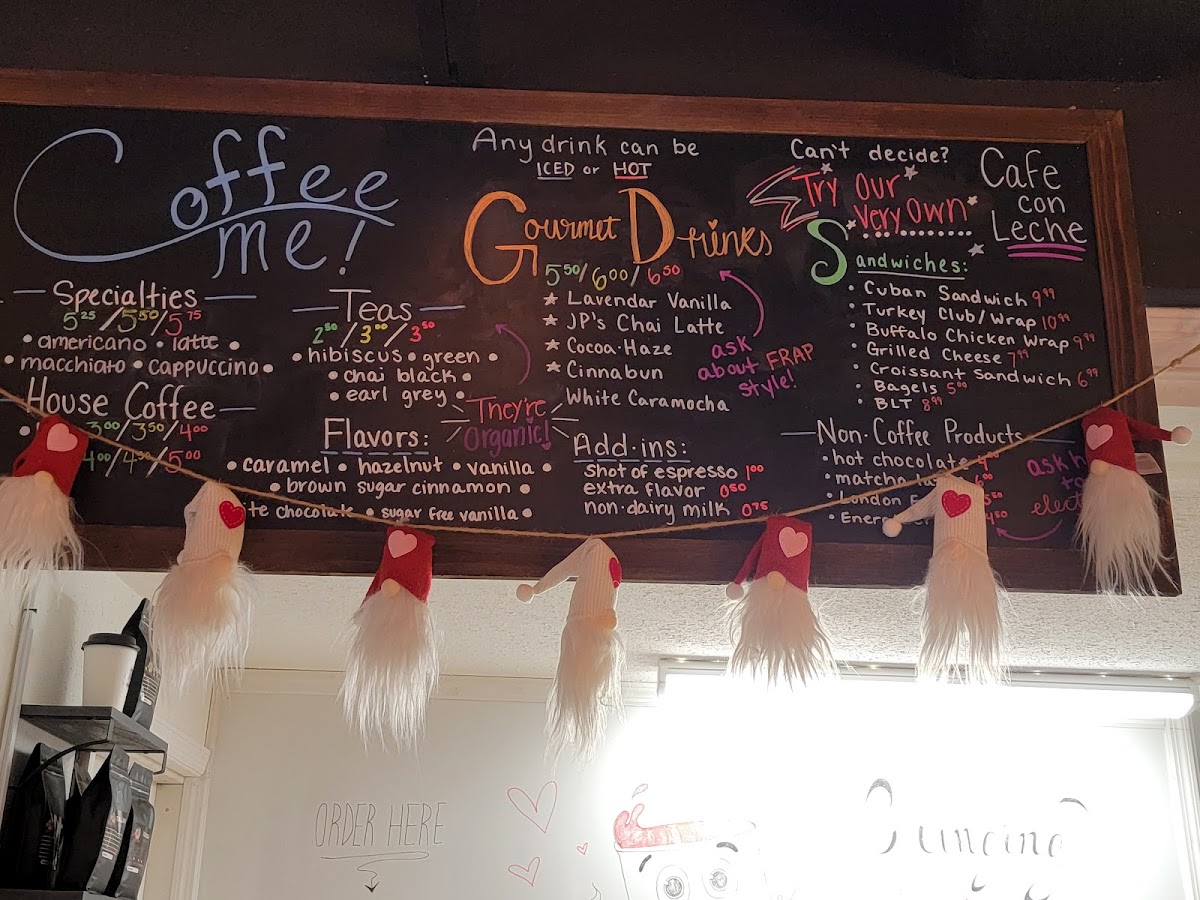 Coffee
me!
Specialties
5.25/5.50/5.75
• americano • latte •
• macchiato • cappuccino •
House Coffee
3.00/3.50/4.00
4.00/4.50/5.00
Teas
2.50/3.00/3.50
• hibiscus • green •
• chai black •
• earl grey •
They're
Organic!
Flavors:
• caramel • hazelnut • vanilla •
• brown sugar cinnamon •
chocolate • sugar free vanilla •
Any drink can be
ICED or HOT
Gourmet Drinks
5.50/6.00/6.50
★ Lavendar Vanilla
★ JP's Chai Latte
★ Cocoa·Haze
★ Cinnabun
White Caramocha
ask
about FRAP
style!
Add-ins:
shot of espresso 1.00
extra flavor 0.50
non-dairy milk 0.75
Can't decide?
Try our
very own
Cafe
con
Leche
Sandwiches:
• Cuban Sandwich 9.99
• Turkey Club/Wrap 10.99
• Buffalo Chicken Wrap 9.99
• Grilled Cheese 7.99
• Croissant Sandwich 6.99
• Bagels 5.00
• BLT 8.99
Non-Coffee Products
• hot chocolate
• matcha
• London
ask
ORDER HERE